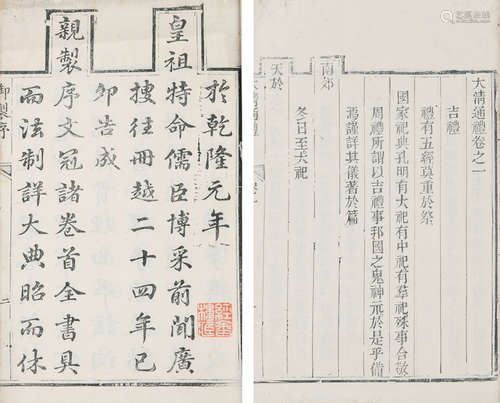 大清通禮卷之一
吉禮
禮有五經莫重於祭
國家祀典孔明有大祀有中祀有羣祀殊事合敬
周禮所謂以吉禮事邦國之鬼神示於是乎備
焉謹詳其儀著於篇
南郊
冬日至大祀
天於
於乾隆元年
皇祖特命儒臣博采前聞廣
搜往冊越二十四年已
卯告成
親製序文冠諸卷首全書具
而法制詳大典昭而休
御製序
二